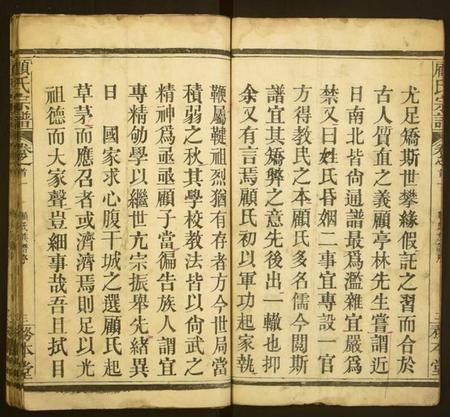 顧氏宗譜
尤足矯斯世攀緣假託之習而合於
古人質直之義顧亭林先生嘗謂近
日南北皆尚通譜最爲濫雜宜嚴爲
禁又曰姓氏昏姻二事宜專設一官
方得教民之本顧氏多名儒今閱斯
譜宜其矯弊之意先後出一轍也抑
余又有言焉顧氏初以軍功起家執
鞭屬鞬祖烈猶有存者方今世局當
積弱之秋其學校教法皆以尚武之
精神爲亟亟顧子當徧告族人謂宜
專精劬學以繼世亢宗振舉先緒異
日 國家求心腹干城之選顧氏起
草茅而應召者或濟濟焉則足以光
祖德而大家聲豈細事哉吾且拭目
顧氏宗譜
卷之首
三
務本堂